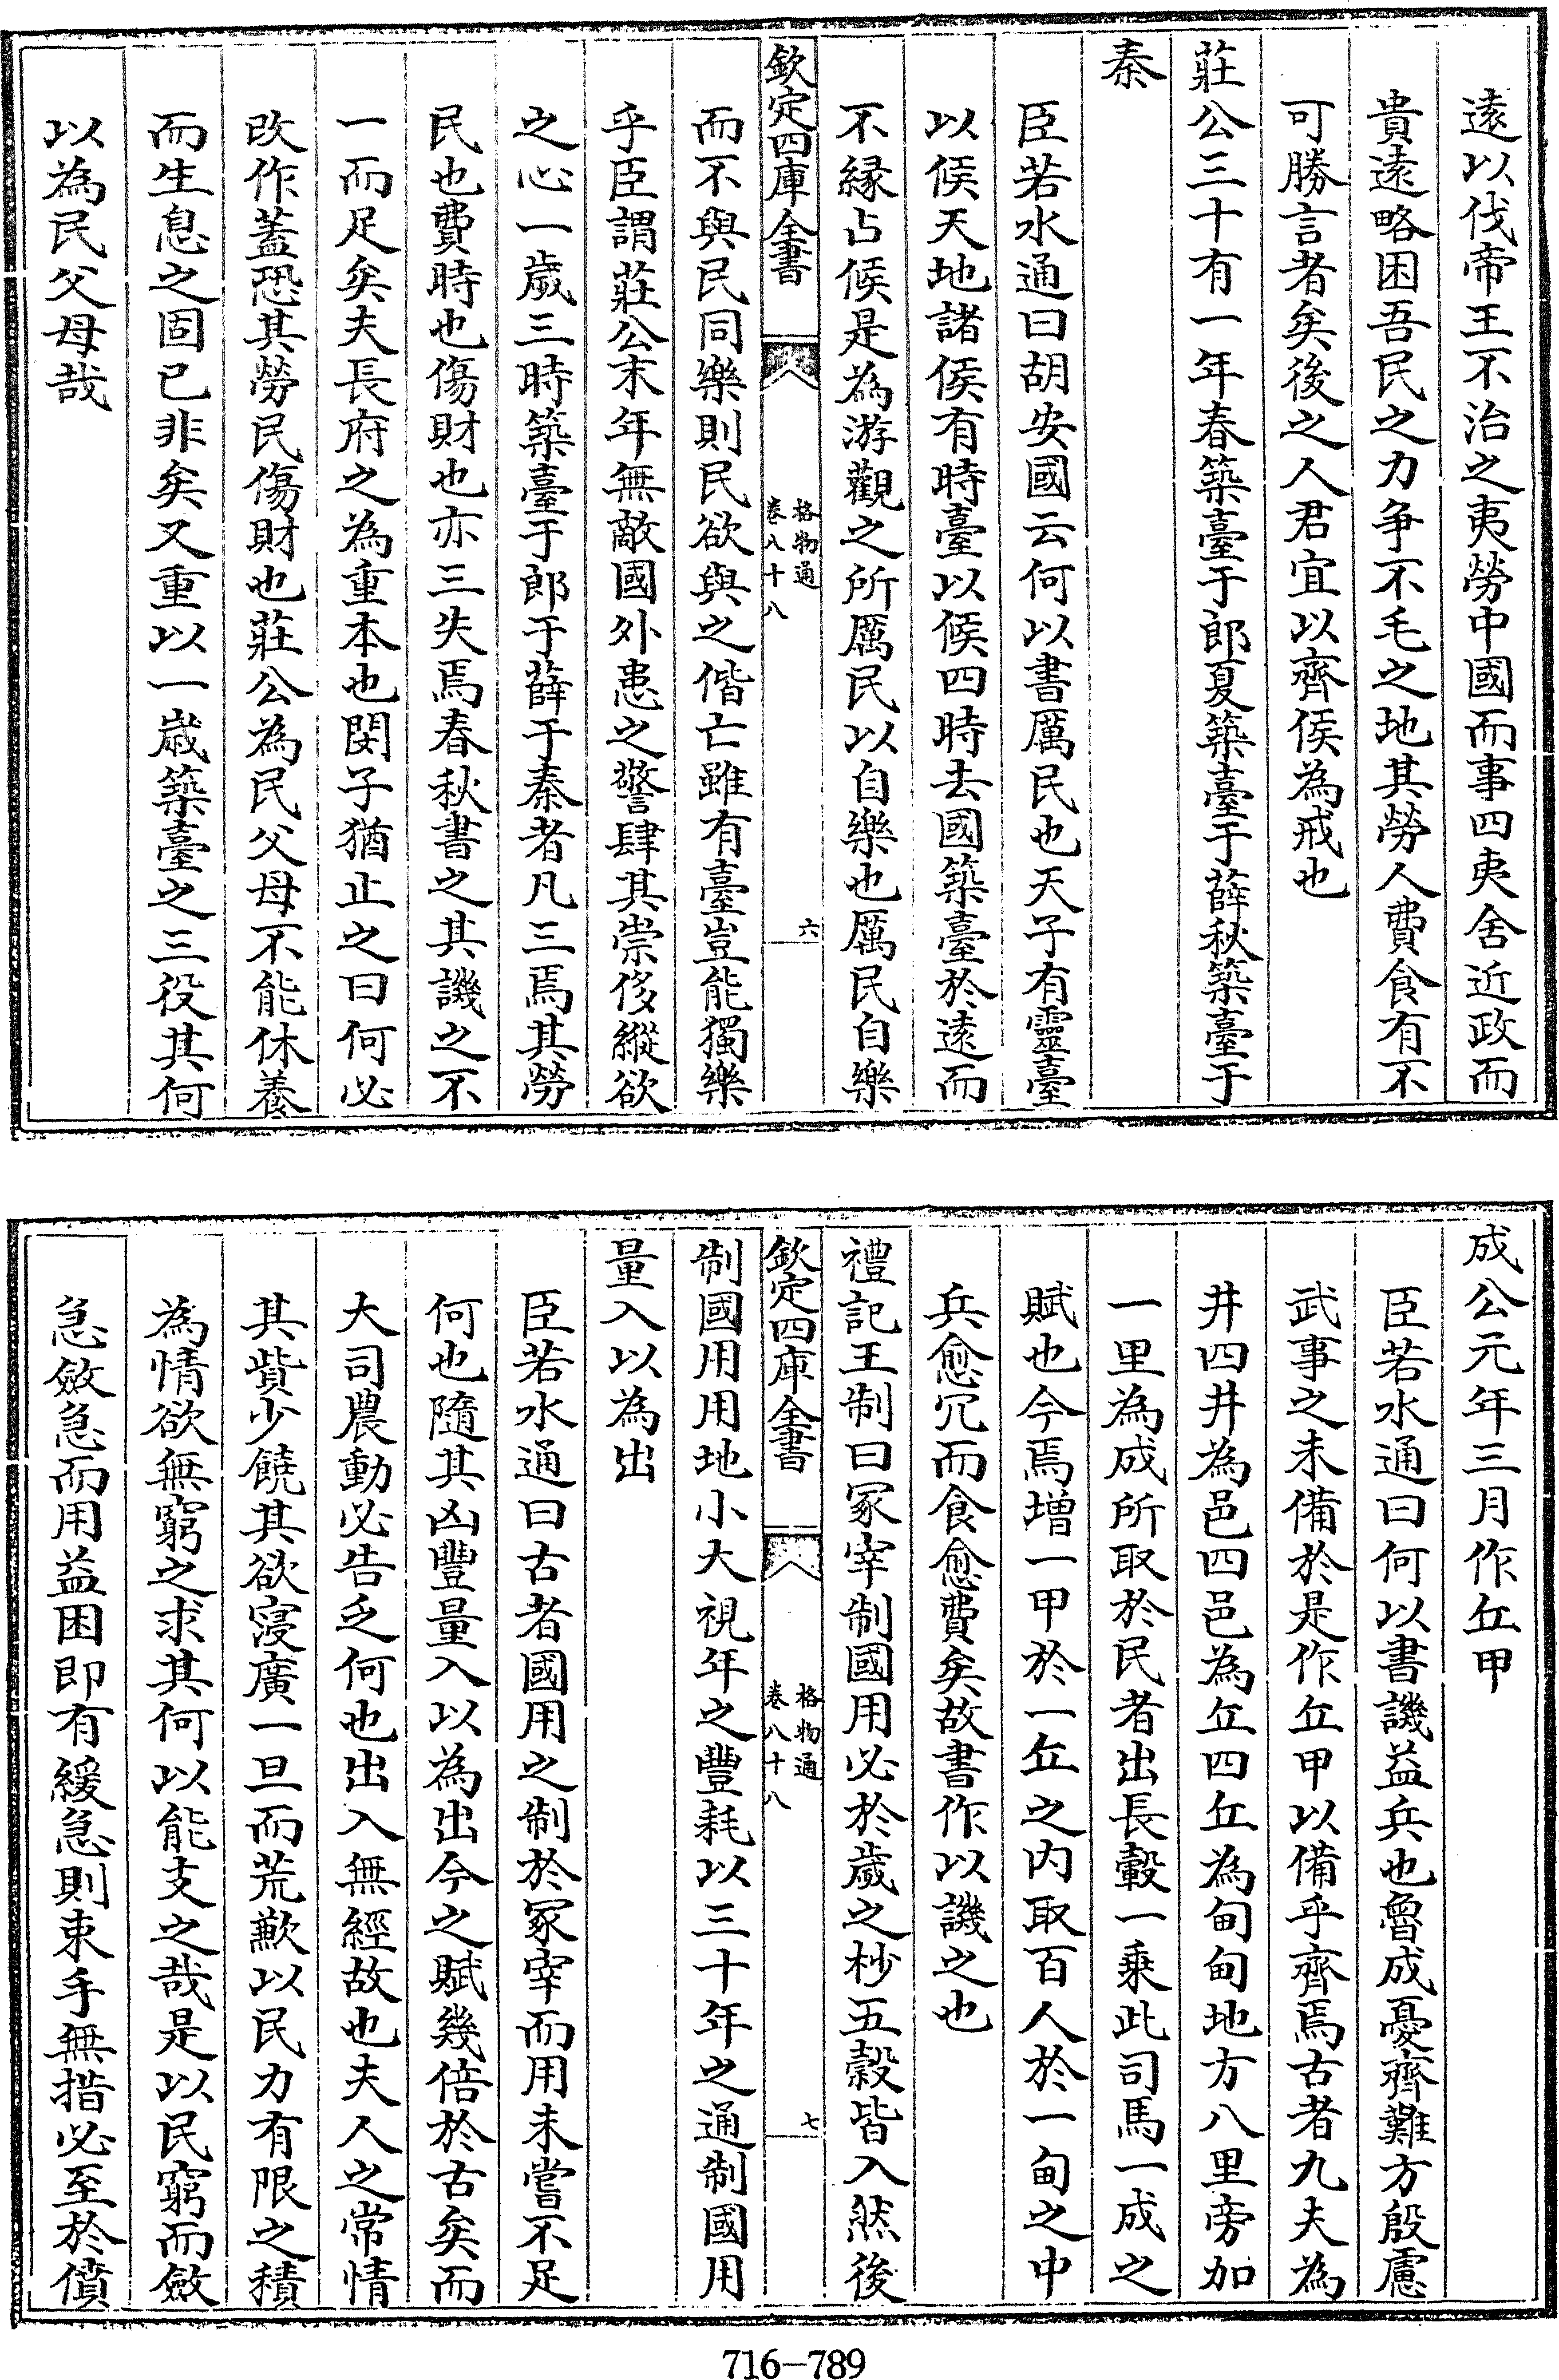 遠以伐帝王不治之夷勞中國而事四夷舍近政而
貴遠略困吾民之力争不毛之地其勞人費食有不
可勝言者矣後之人君宜以齊侯為戒也
莊公三十有一年春築臺于郎夏築臺于薛秋築臺于
秦
臣若水通曰胡安國云何以書厲民也天子有靈臺
以候天地諸侯有時臺以候四時去國築臺於遠而
不緣占候是為游觀之所厲民以自樂也厲民自樂
欽定四庫全書
格物通
卷八十八
六
而不與民同樂則民欲與之偕亡雖有臺豈能獨樂
乎臣謂莊公末年無敵國外患之警肆其崇侈縱欲
之心一歲三時築臺于郎于薛于秦者凡三焉其勞
民也費時也傷財也亦三失焉春秋書之其譏之不
一而足矣夫長府之為重本也閔子猶止之曰何必
改作蓋恐其勞民傷財也莊公為民父母不能休養
而生息之固已非矣又重以一歲築臺之三役其何
以為民父母哉
成公元年三月作丘甲
臣若水通曰何以書譏益兵也魯成憂齊難方殷慮
武事之未備於是作丘甲以備乎齊焉古者九夫為
井四井為邑四邑為丘四丘為甸甸地方八里旁加
一里為成所取於民者出長轂一乘此司馬一成之
賦也今焉增一甲於一丘之内取百人於一甸之中
兵愈冗而食愈費矣故書作以譏之也
禮記王制曰冢宰制國用必於歲之杪五穀皆入然後
欽定四庫全書
格物通
卷八十八
七
制國用用地小大視年之豐耗以三十年之通制國用
量入以為出
臣若水通曰古者國用之制於冢宰而用未嘗不足
何也隨其凶豐量入以為出今之賦幾倍於古矣而
大司農動必告乏何也出入無經故也夫人之常情
其貲少饒其欲寖廣一旦而荒歉以民力有限之積
為情欲無窮之求其何以能支之哉是以民窮而斂
急斂急而用益困即有緩急則束手無措必至於僨
716-789